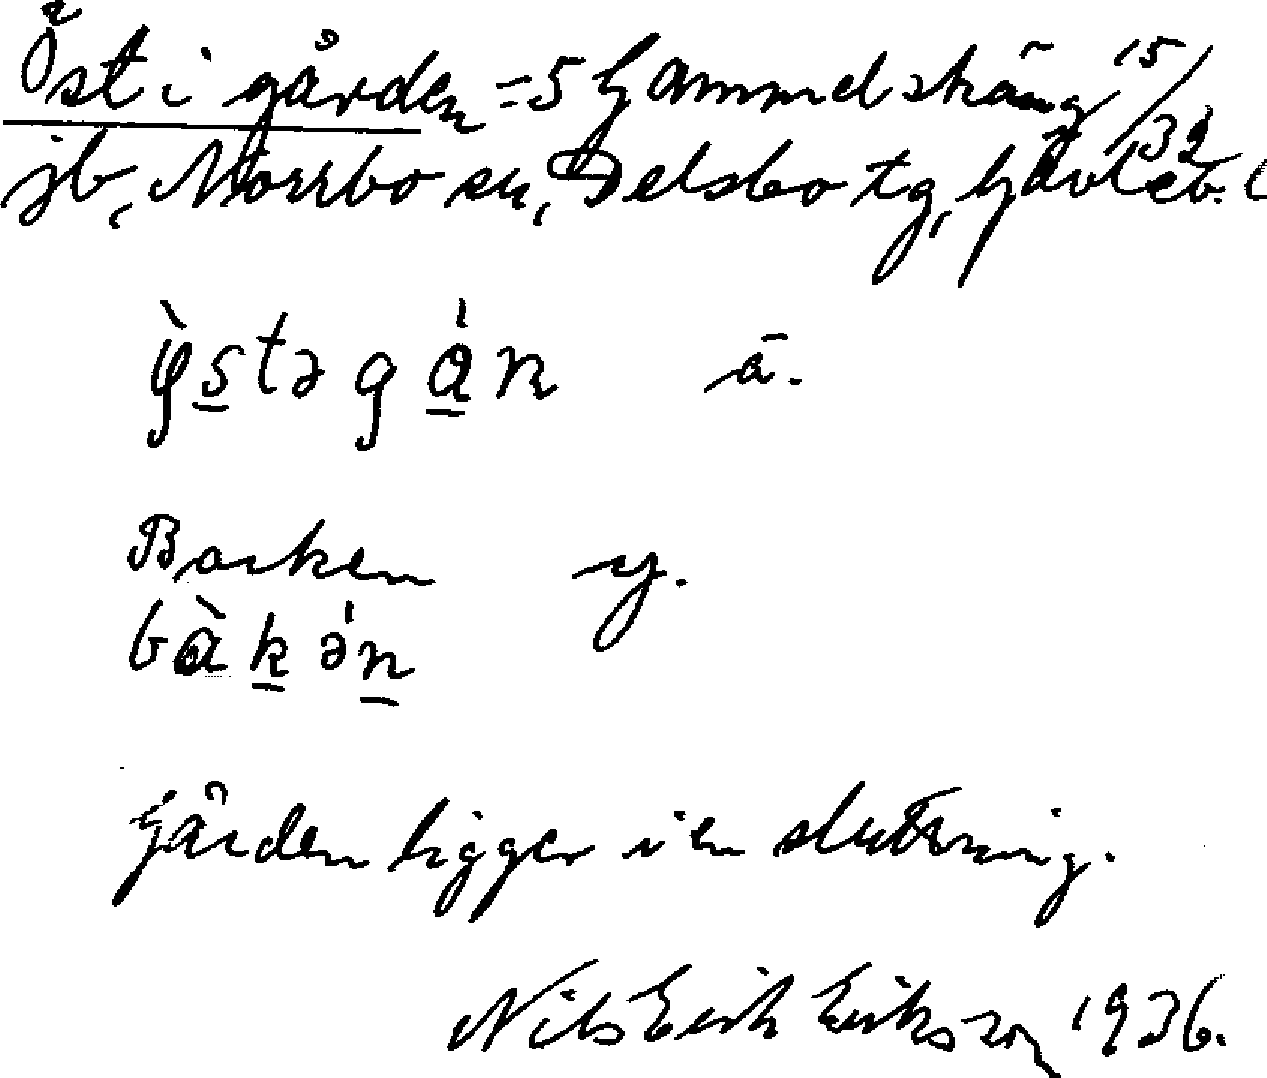 Öst i gården = 5 Gammelsträng 15/32
jb, Norrbo sn, Delsbo tg, Gävleb. l
ỳstəgån ä.
Backen y.
bàkən
Gården ligger i en sluttning.
Nils Erik Eriksson 1936.